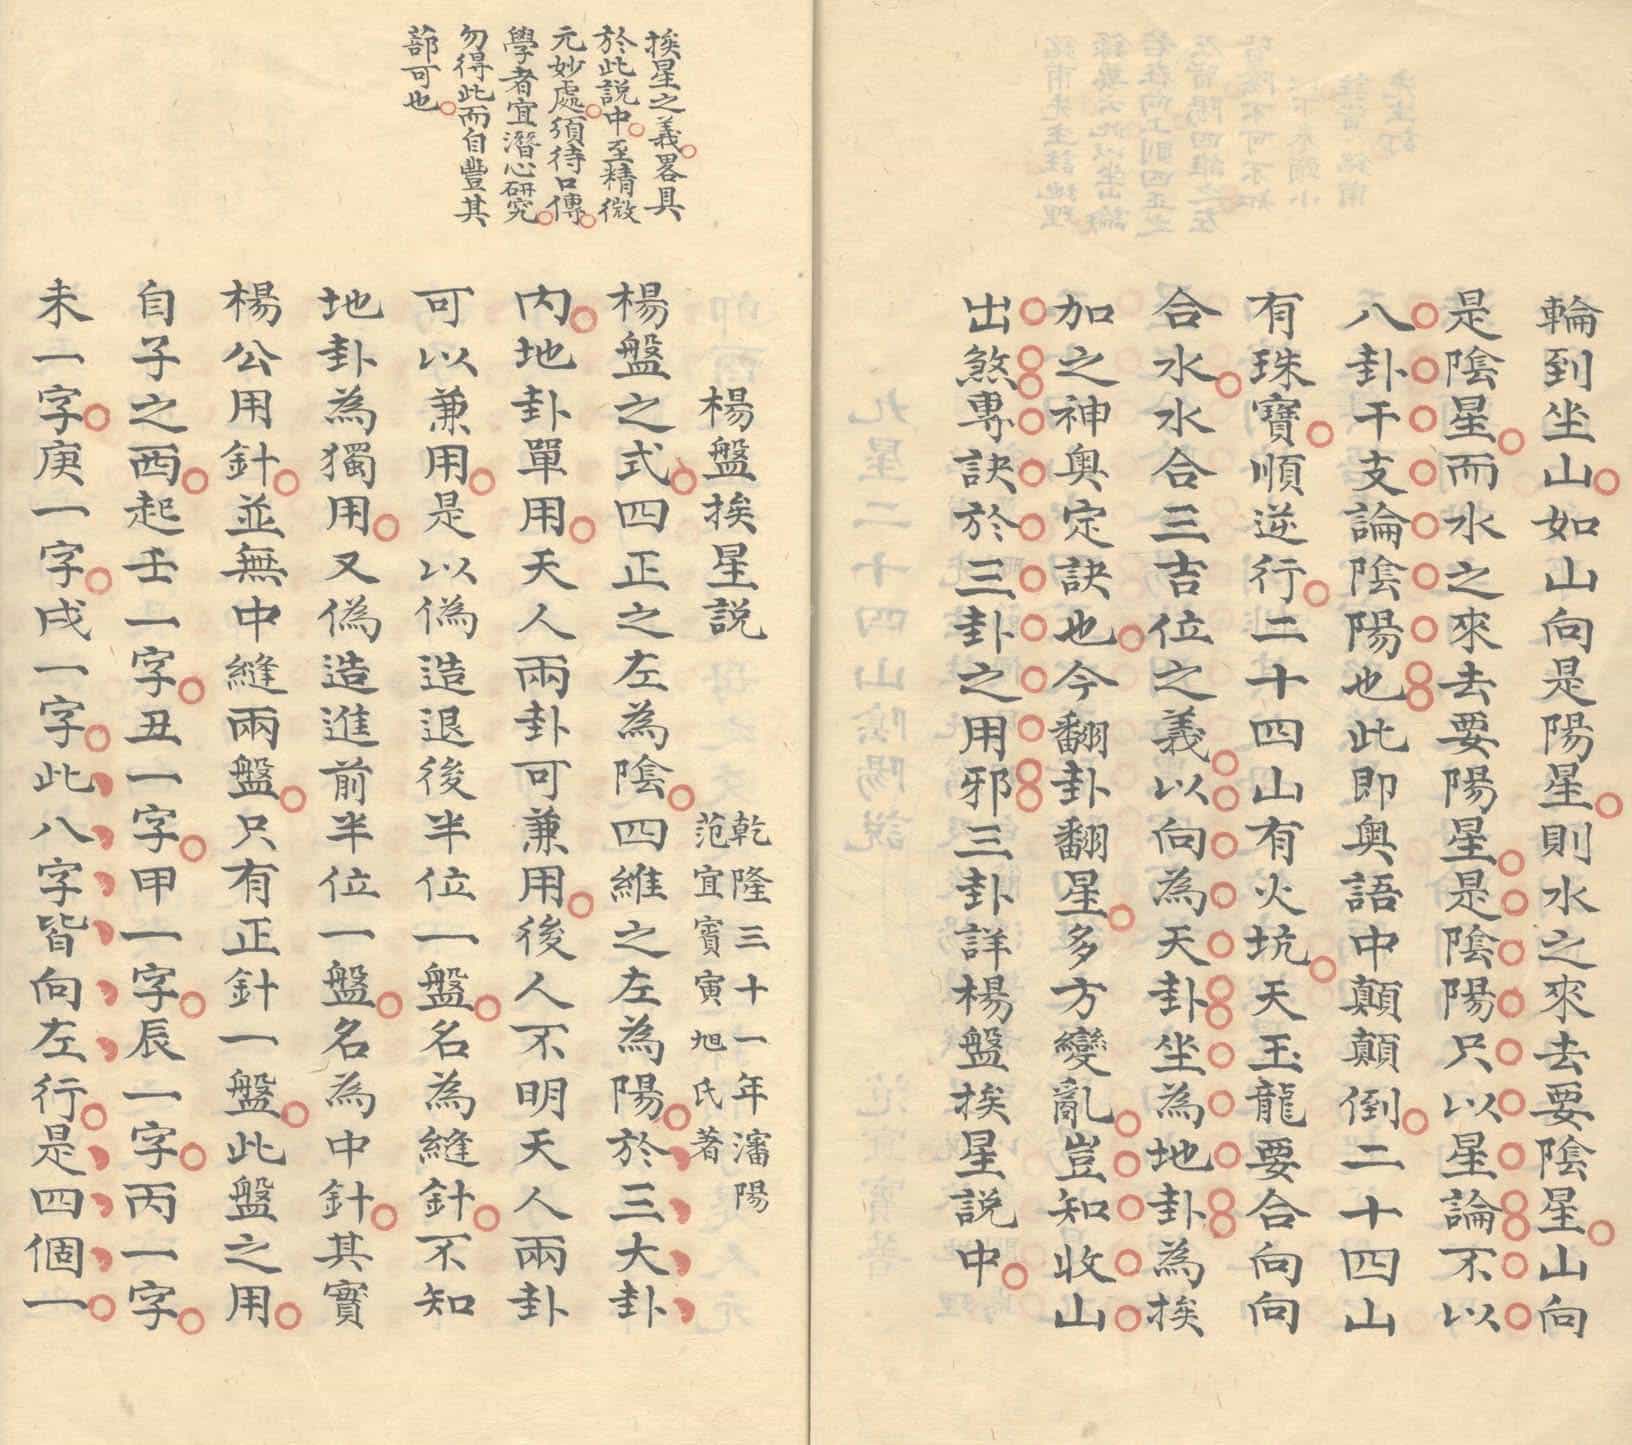 輪到坐山如山向是陽星則水之來去要陰星山向
是陰星而水之來去要陽星是陰陽只以星論不以
八卦干支論陰陽也此即奧語中顛顛倒二十四山
有珠寶順逆行二十四山有火坑天玉龍要合向向
合水水合三吉位之義以向為天卦坐為地卦為挨
加之神奧定訣也今翻卦翻星多方變亂豈知收山
出煞專訣於三卦之用邪三卦詳楊盤挨星説中
挨星之義畧具
於此説中至精微
元妙處須待口傳
學者宜潛心研究
勿得此而自豐其
蔀可也
楊盤挨星説
乾隆三十一年瀋陽
范宜賓寅旭氏著
楊盤之式四正之左為陰四維之左為陽於三大卦
內地卦單用天人兩卦可兼用後人不明天人兩卦
可以兼用是以偽造退後半位一盤名為縫針不知
地卦為獨用又偽造進前半位一盤名為中針其實
楊公用針並無中縫兩盤只有正針一盤此盤之用
自子之西起壬一字丑一字甲一字辰一字丙一字
未一字庚一字戌一字此八字皆向左行是四個一